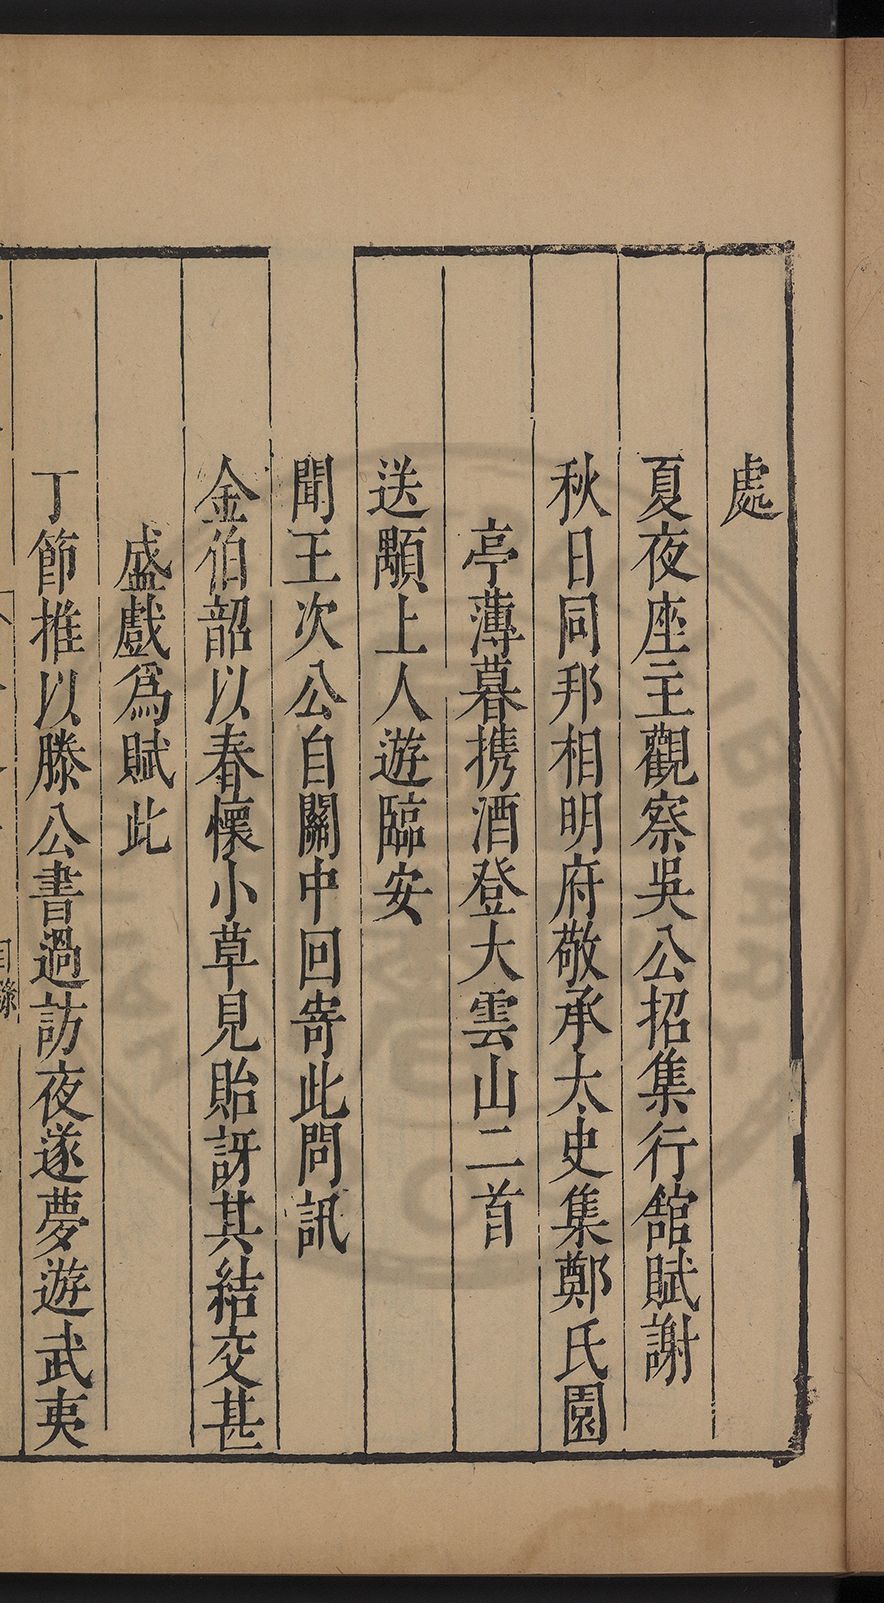 處
夏夜座主觀察吳公招集行舘賦謝
秋日同邦相明府敬承太史集鄭氏園
亭薄暮携酒登大雲山二首
送顒上人遊臨安
聞王次公自關中回寄此問訊
金伯韶以春懷小草見貽訝其結交甚
盛戲爲賦此
丁節推以滕公書過訪夜遂夢遊武夷
目錄